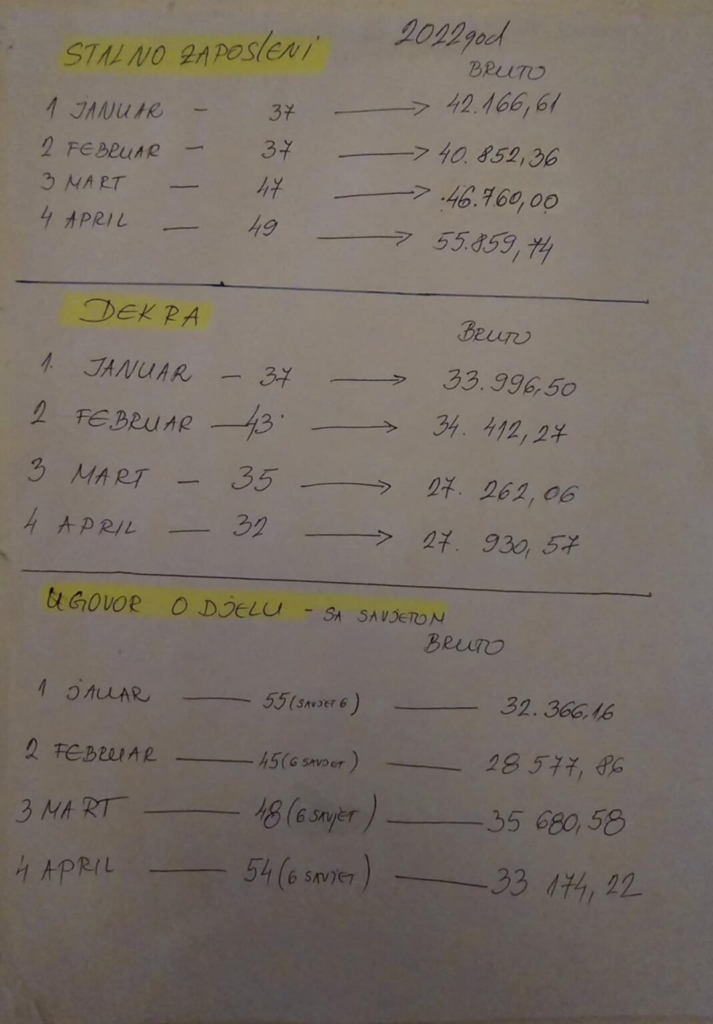 2022god
STALNO ZAPOSLENI
BRUTO
1 JANUAR - 37 → 42.166,61
2 FEBRUAR - 37 → 40.852,36
3 MART - 47 → 46.760,00
4 APRIL - 49 → 55.859,74
DEKRA
BRUTO
1. JANUAR - 37 → 33.996,50
2 FEBRUAR - 43 → 34.412,27
3 MART - 35 → 27.262,06
4 APRIL - 32 → 27.930,57
UGOVOR O DJELU - SA SAVJETOM
BRUTO
1 JAUAR — 55 (SAVJET 6) — 32.366,16
2 FEBRUAR — 45 (6 SAVJET) — 28 577,86
3 MART — 48 (6 SAVJET) — 35 680,58
4 APRIL — 54 (6 SAVJET) — 33 174,22